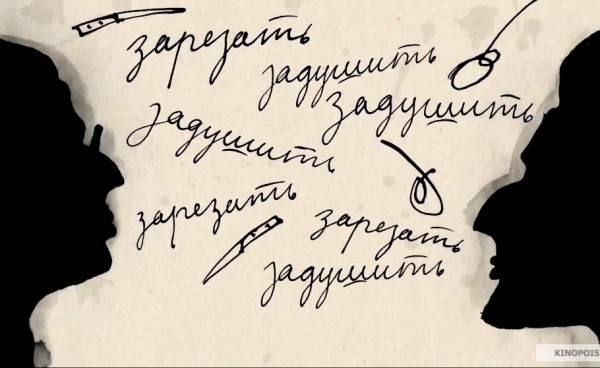 зарезать
задушить
задушить
задушить
зарезать
зарезать
задушить
KINOPOIS